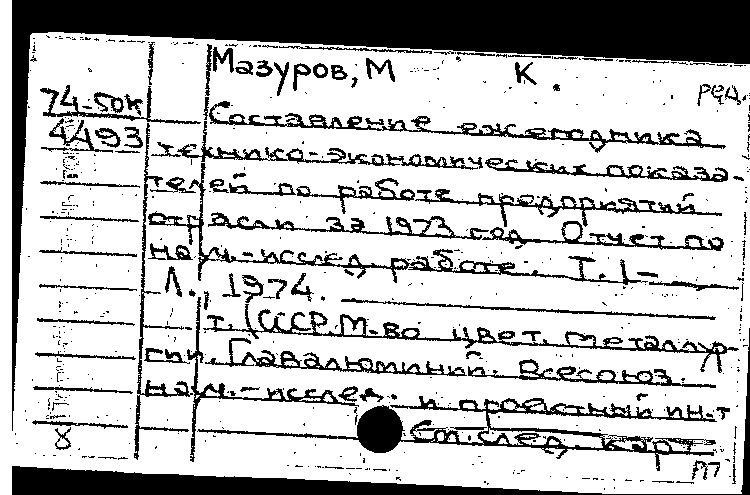 Мазуров, М К. ред.
74-50К
4493
Составление ежегодника
технико-экономических показа-
телей по работе предприятий
отрасли за 1973 год. Отчет по
науч.-исслед. работе. Т. 1-
Л., 1974.
т. (СССР. М-во цвет. металлур-
гии. Главалюминий. Всесоюз.
науч.-исслед. и проектный ин-т
См. след. карт.
8